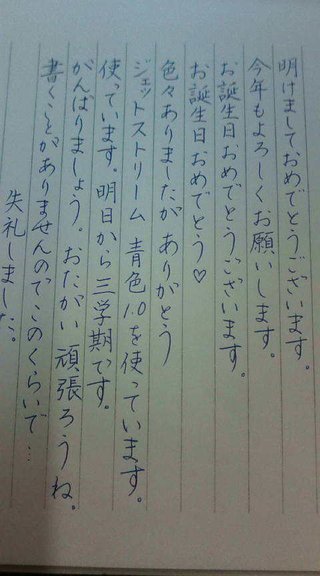 明けましておめでとうございます。
今年もよろしくお願いします。
お誕生日おめでとうございます。
お誕生日おめでとう♡
色々ありましたが ありがとう
ジェットストリーム 青色1.0を使っています。
使っています。明日から三学期です。
がんばりましょう。おたがい 頑張ろうね。
書くことがありませんのでこのくらいで…
失礼しました。